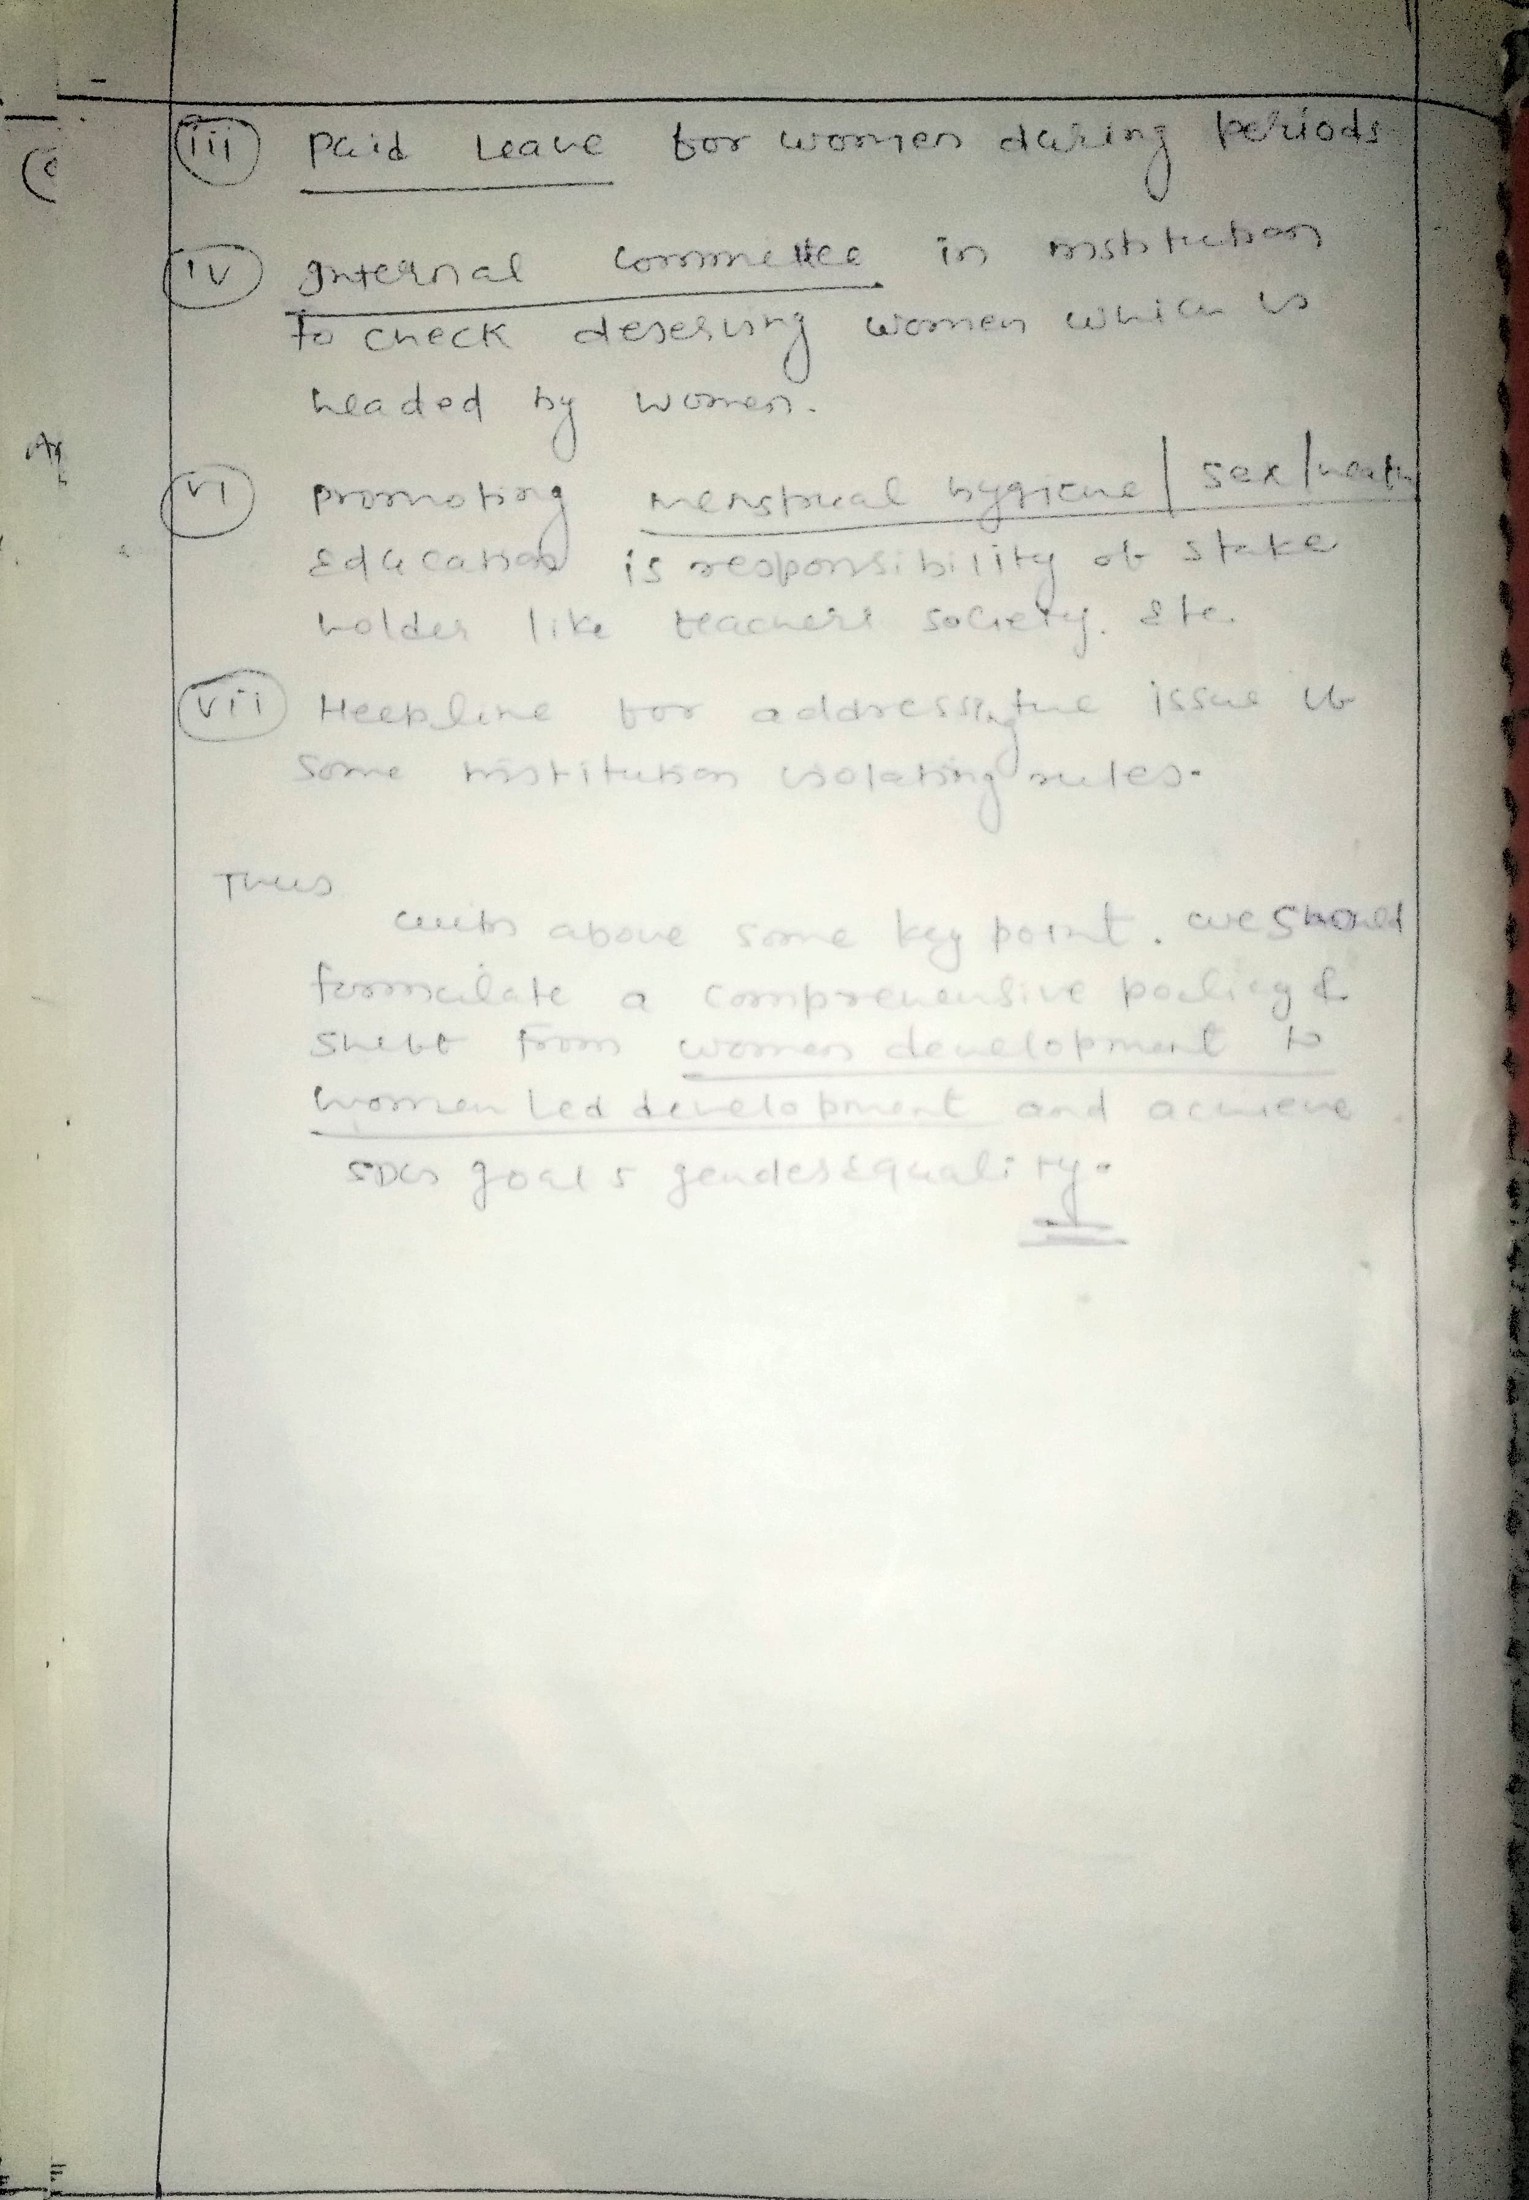 (iii) Paid Leave for women during periods
(iv) Internal Committee in institution
to check deserving women which is
headed by women.
(vi) promoting menstrual hygiene / sex / health
Education is responsibility of stake
holder like teachers society. Etc.
(vii) Heepline for addressing the issue if
some institution violating rules.
Thus
with above some key point. we should
formulate a comprehensive policy &
shift from women development to
women led development and achieve
SDGs goal 5 gender equality.